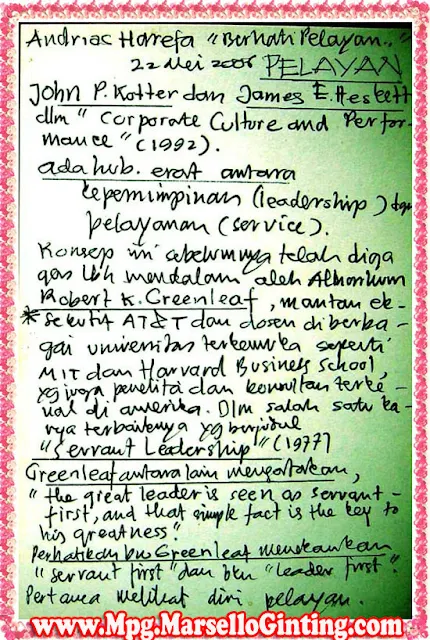 Andrias Harefa "Berhati Pelayan.."
22 Mei 2006 PELAYAN
John P. Kotter dan James E. Heskett
dlm "Corporate Culture and Perfor-
mance" (1992).
ada hub. erat antara
kepemimpinan (leadership) dgn
pelayanan (service).
Konsep ini sebelumnya telah diga
gas lbh mendalam oleh Almarhum
Robert K. Greenleaf, mantan ek-
* sekutif AT&T dan dosen di berba-
gai universitas terkemuka seperti
MIT dan Harvard Business School,
yg juga peneliti dan konsultan terke-
nal di amerika. Dlm salah satu ka-
rya terbaiknya yg berjudul
"Servant Leadership" (1977)
Greenleaf antara lain mengatakan,
"the great leader is seen as servant-
first, and that simple fact is the key to
his greatness."
Perhatikan bhw Greenleaf menekankan
"servant first" dan bkn "leader first".
Pertama melihat diri pelayan.
www.Mpg.MarselloGinting.com